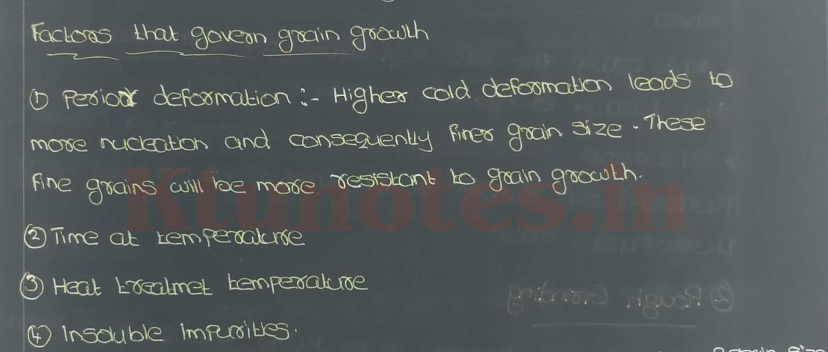 Factors that govern grain growth
① Perior deformation :- Higher cold deformation leads to
more nucleation and consequently finer grain size. These
fine grains will be more resistant to grain growth.
Ktunotes.in
② Time at temperature
③ Heat treatmet temperature
② Rough Grinding
④ Insoluble impurities.